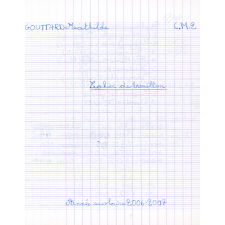 GOUTTARD Mathilde C.M.2
Cahier de brouillon
Année scolaire 2006-2007